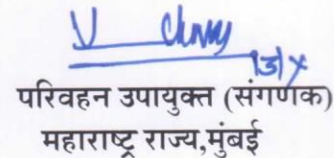 परिवहन उपायुक्त (संगणक)
महाराष्ट्र राज्य,मुंबई